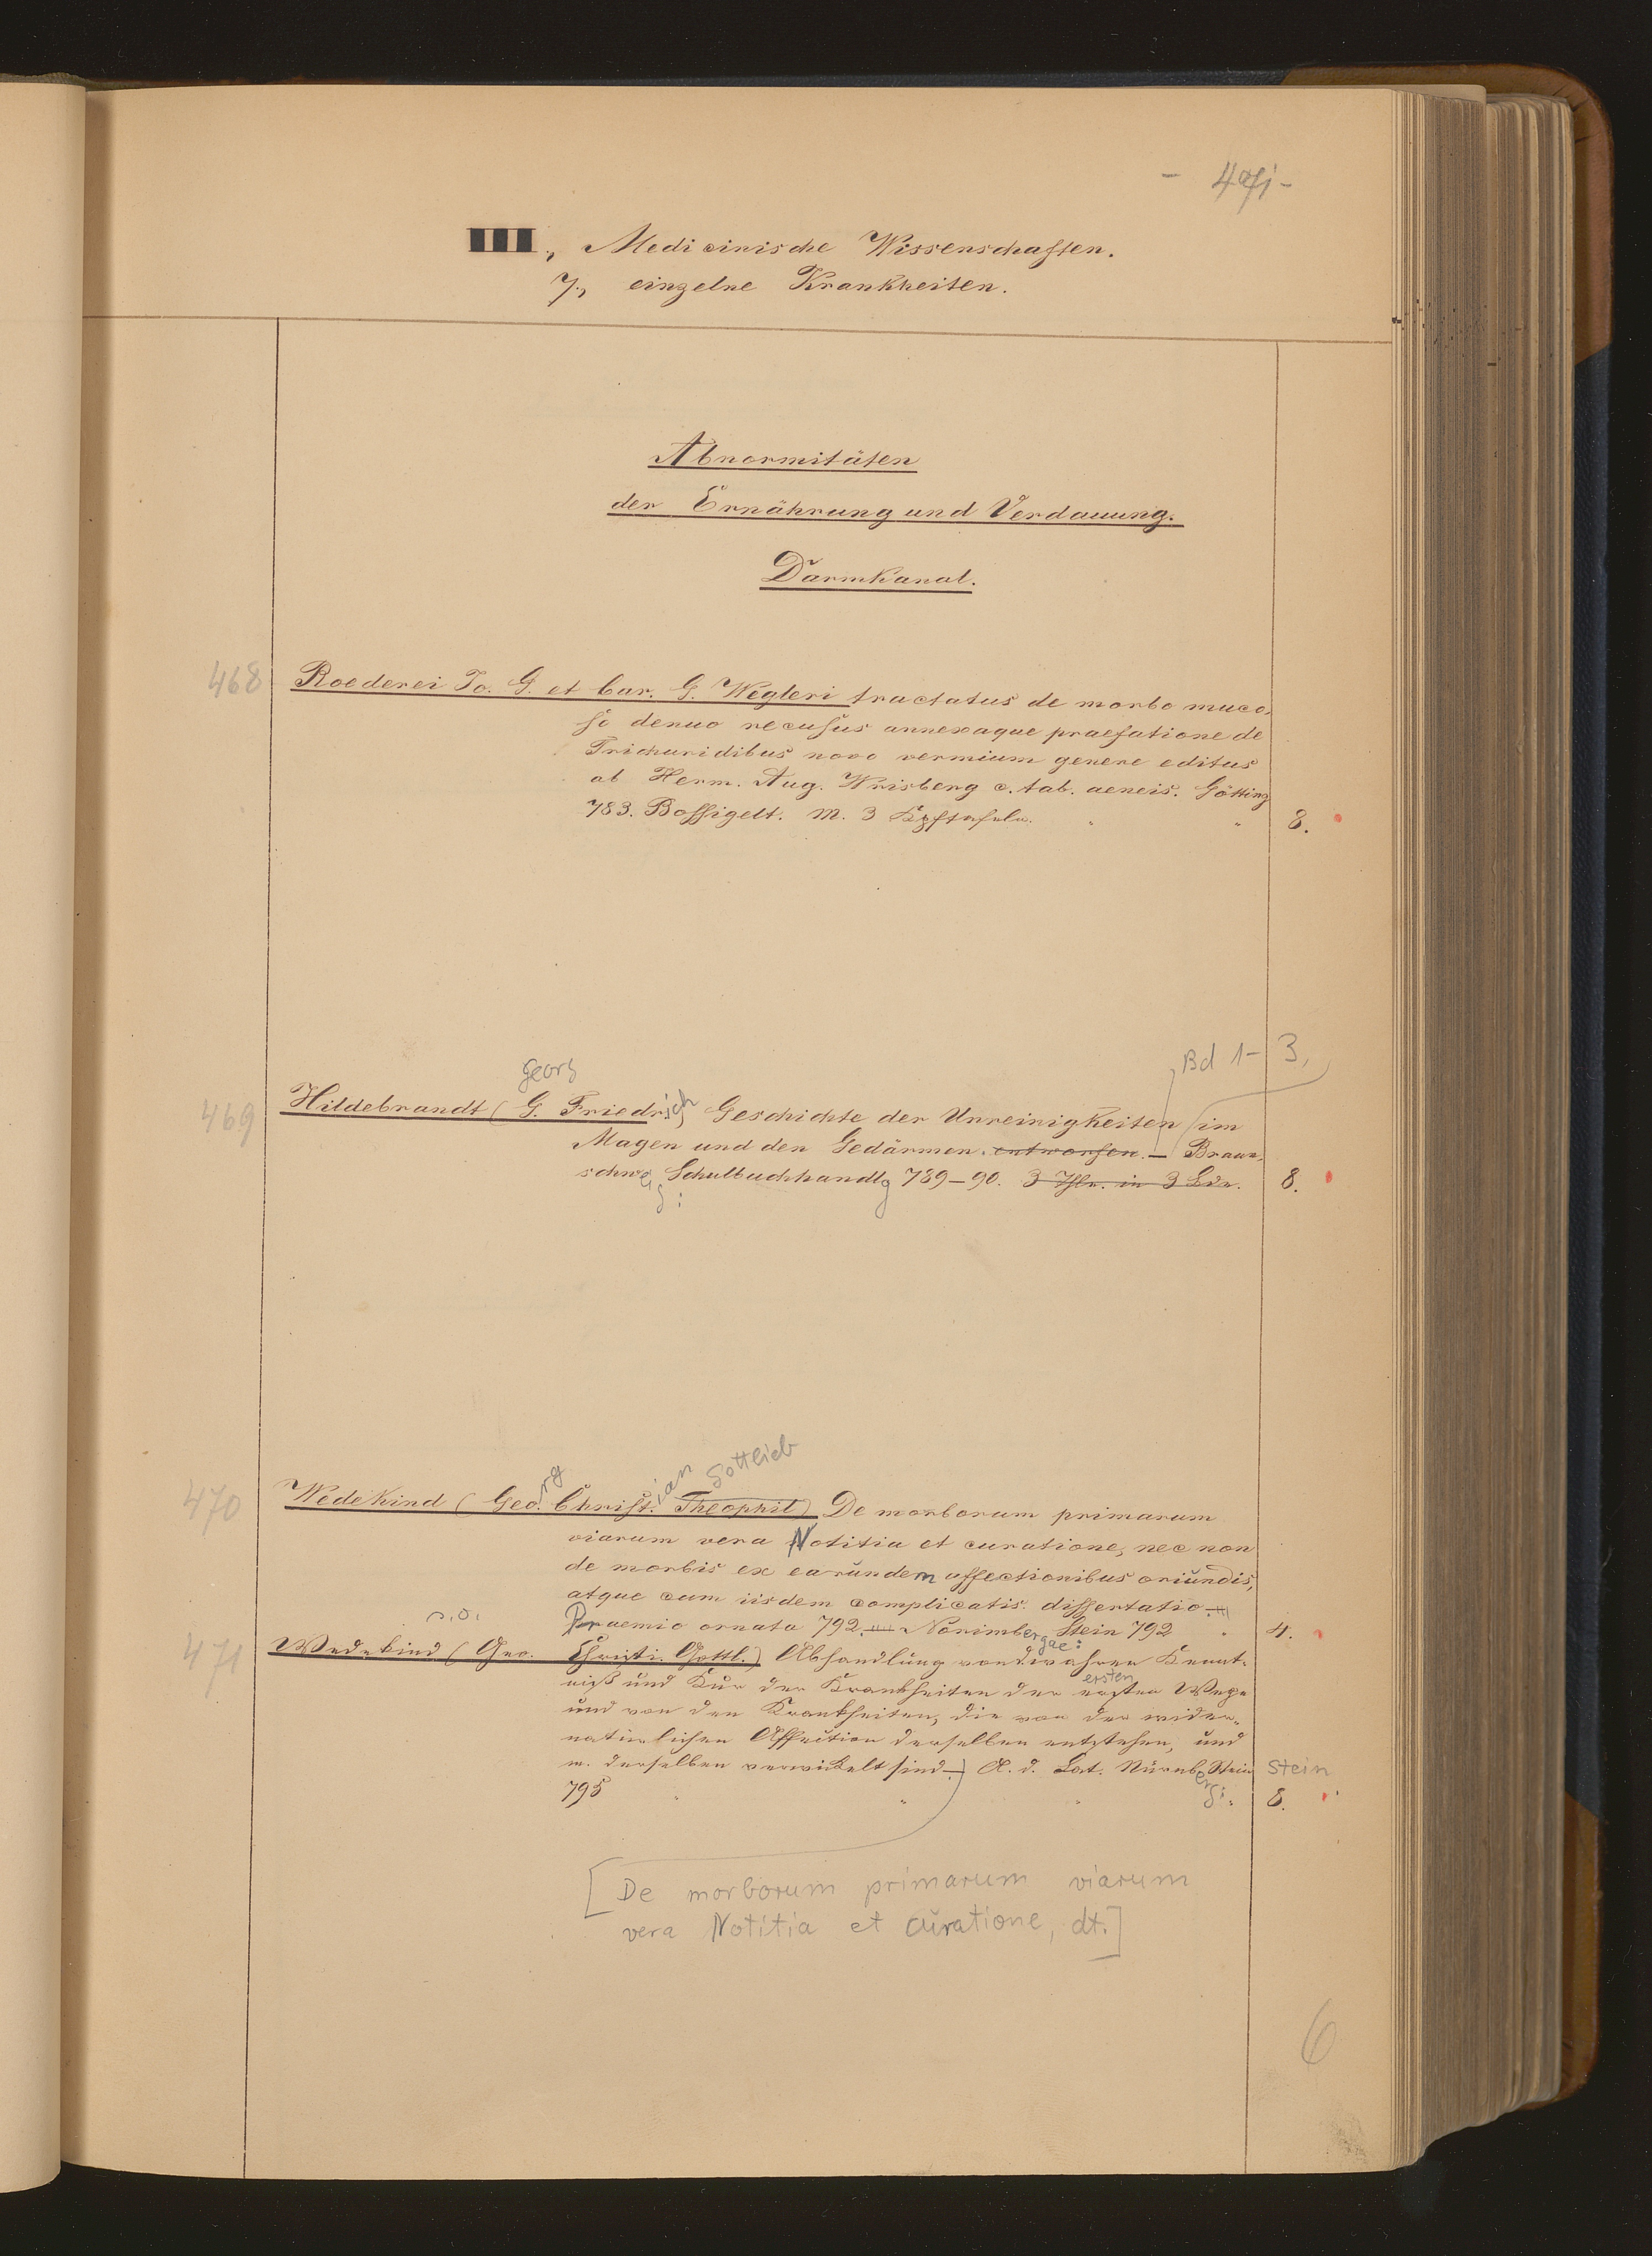 III., Medicinische Wissenschaften.
7., einzelne Krankheiten.
Abnormitäten
der Ernährung und Verdauung.
Darmkanal.
468 Roederei Jo. G. et Car. G. Wegleri tractatus de morbo muco-
so denuo recusus annexaque praefatione de
Trichuridibus novo vermium genere editus
ab Herm. Aug. Wrisberg c. tab. aeneis. Götting
783. Bossigelt. M. 3 Kpftafeln. " " 8.
Bd 1-3,
Georg
469 Hildebrandt (G. Friedrich, Geschichte der Unreinigkeiten im
Magen und den Gedärmen. entworfen. – Braun-
schweig: Schulbuchhandlg 789–90. 3 Thle. in 3 Bdn. 8.
rg ian Gottlieb
470 Wedekind (Geo. Christ. Theophil) De morborum primarum
viarum vera Notitia et curatione, nec non
de morbis ex earundem affectionibus oriundis,
atque cum iisdem complicatis. dissertatio
Praemio ornata 792. Norimbergae: Stein 792 " 4.
s.o.
471 Wedekind (Geo. Christi. Gottl.) Abhandlung von d. wahren Kennt-
ersten
niß und Kur der Krankheiten der ersten Wege
und von den Krankheiten, die von der wider-
natürlichen Affection derselben entstehen, und
m. derselben verwickelt sind. A. d. Lat. Nürnberg: Stein Stein
795 " " " 8.
[De morborum primarum viarum
vera Notitia et curatione, dt.]
6